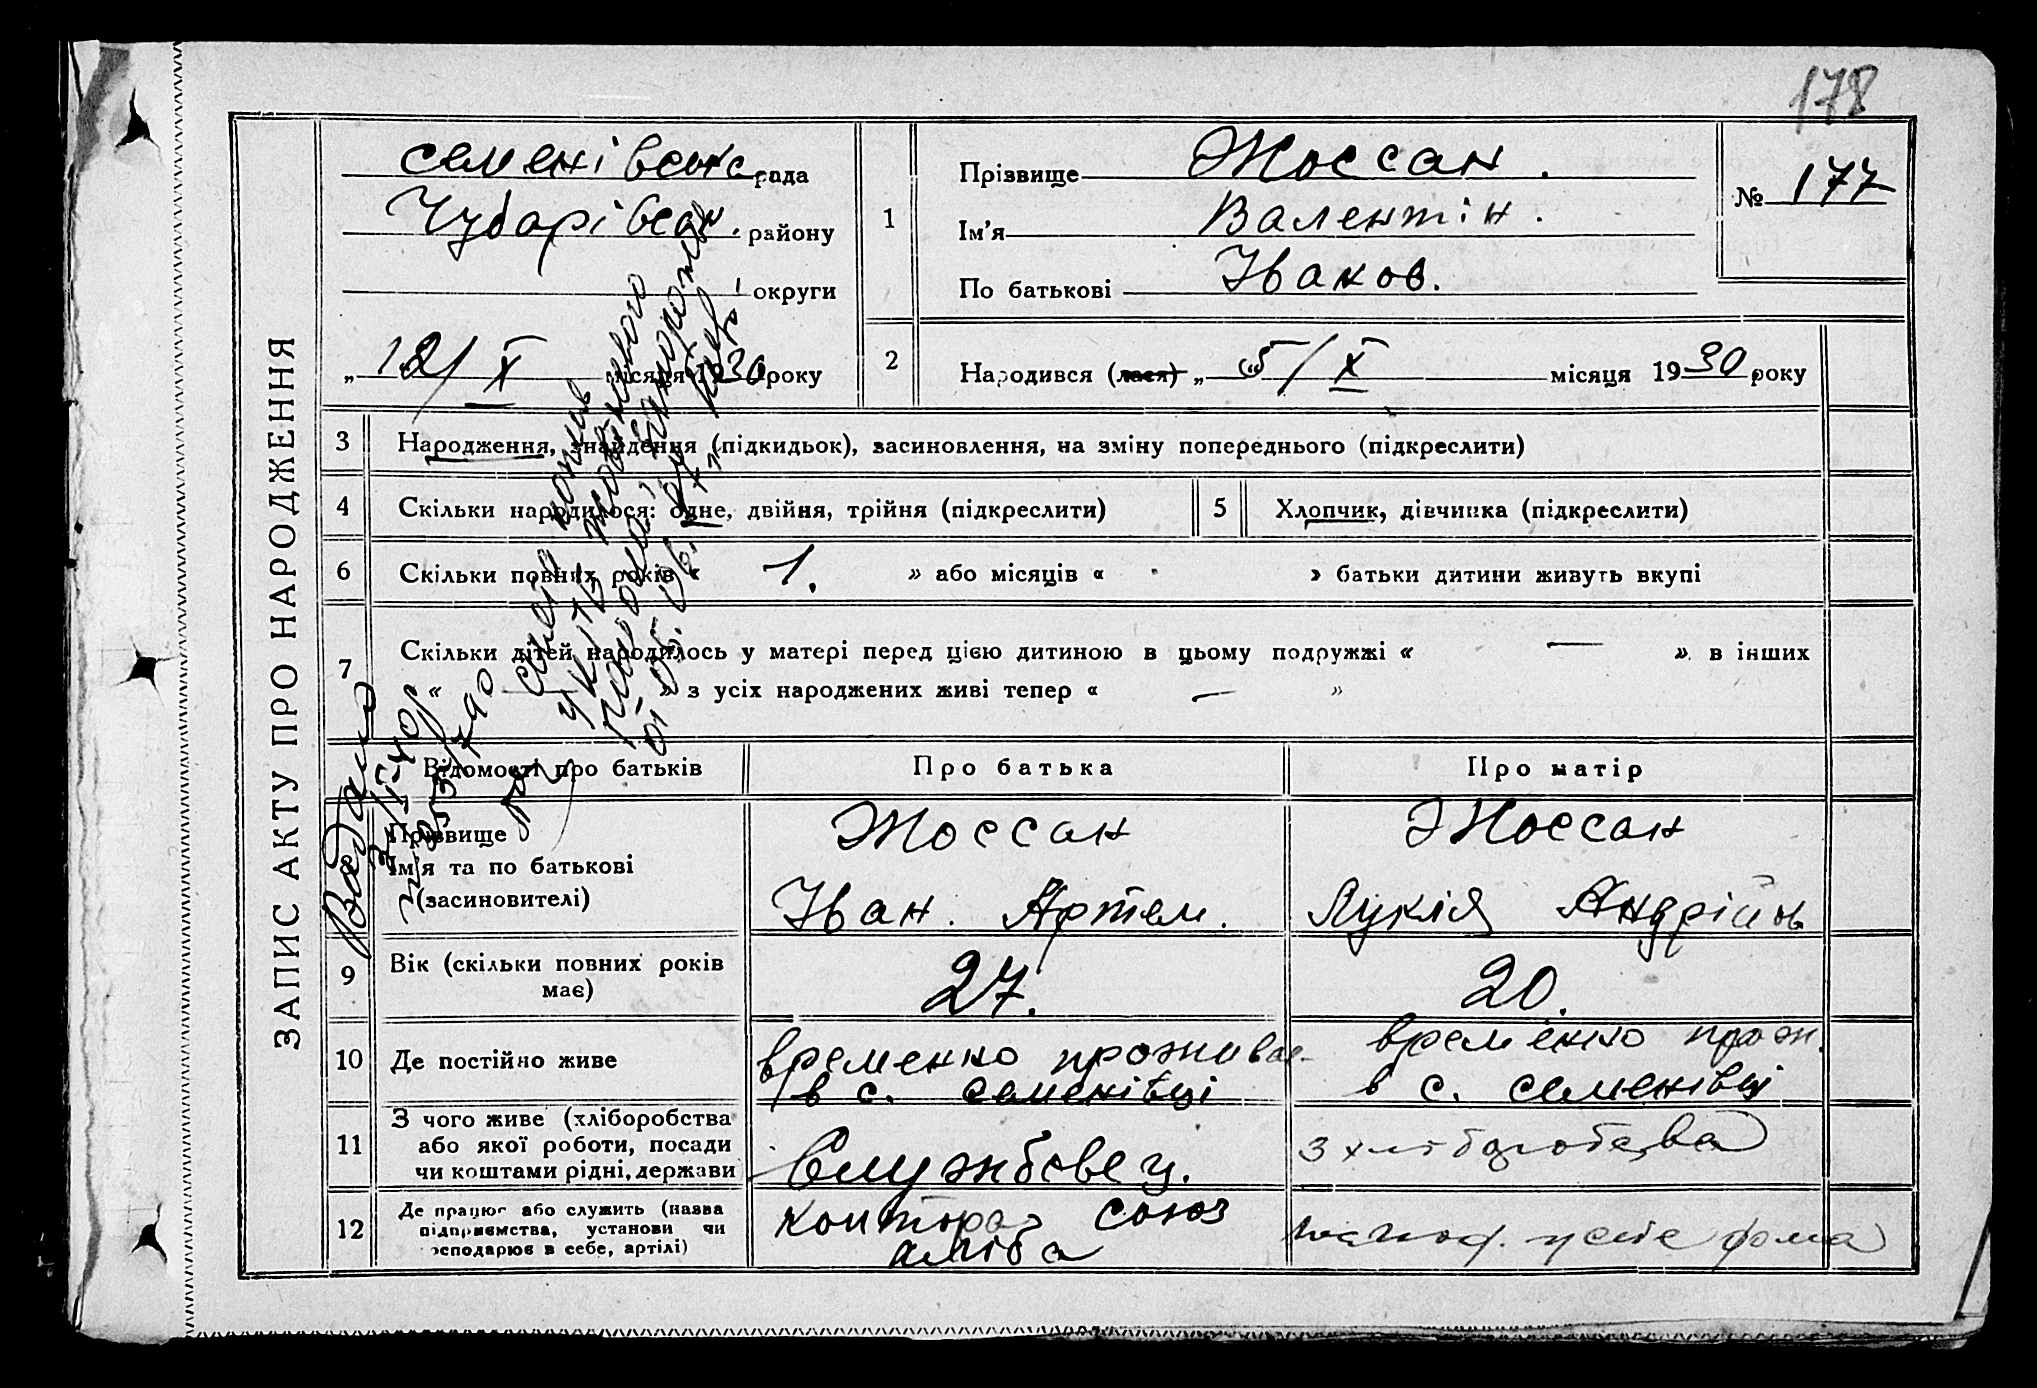 178
ЗАПИС АКТУ ПРО НАРОДЖЕННЯ
семенівськ рада
Чубарівськ. району
округи
„ 12/ X місяця 1930 року
1 Прізвище Жоссан.
Ім'я Валентін.
По батькові Іванов.
№ 177
2 Народився (лася) „ 5/ X місяця 1930 року
3 Народження, знайдення (підкидьок), засиновлення, на зміну попереднього (підкреслити)
4 Скільки народилося: одне, двійня, трійня (підкреслити)
5 Хлопчик, дівчинка (підкреслити)
6 Скільки повних років « 1. » або місяців « » батьки дитини живуть вкупі
7 Скільки дітей народилось у матері перед цією дитиною в цьому подружжі « — » в інших
« — » з усіх народжених живі тепер « — »
Відомості про батьків Про батька Про матір
Прізвище Жоссан Жоссан
Ім'я та по батькові
(засиновителі) Іван. Артем. Лукія Андрійов
9 Вік (скільки повних років
має) 27. 20.
10 Де постійно живе
временно прожива
в с. семенівці
временно прож.
в с. семенівці
11 З чого живе (хліборобства
або якої роботи, посади
чи коштами рідні, держави
Службовец.
з хліборобства
12 Де працює або служить (назва
підприємства, установи чи
господарює в себе, артілі)
контора союз
хліба
дома
Видано